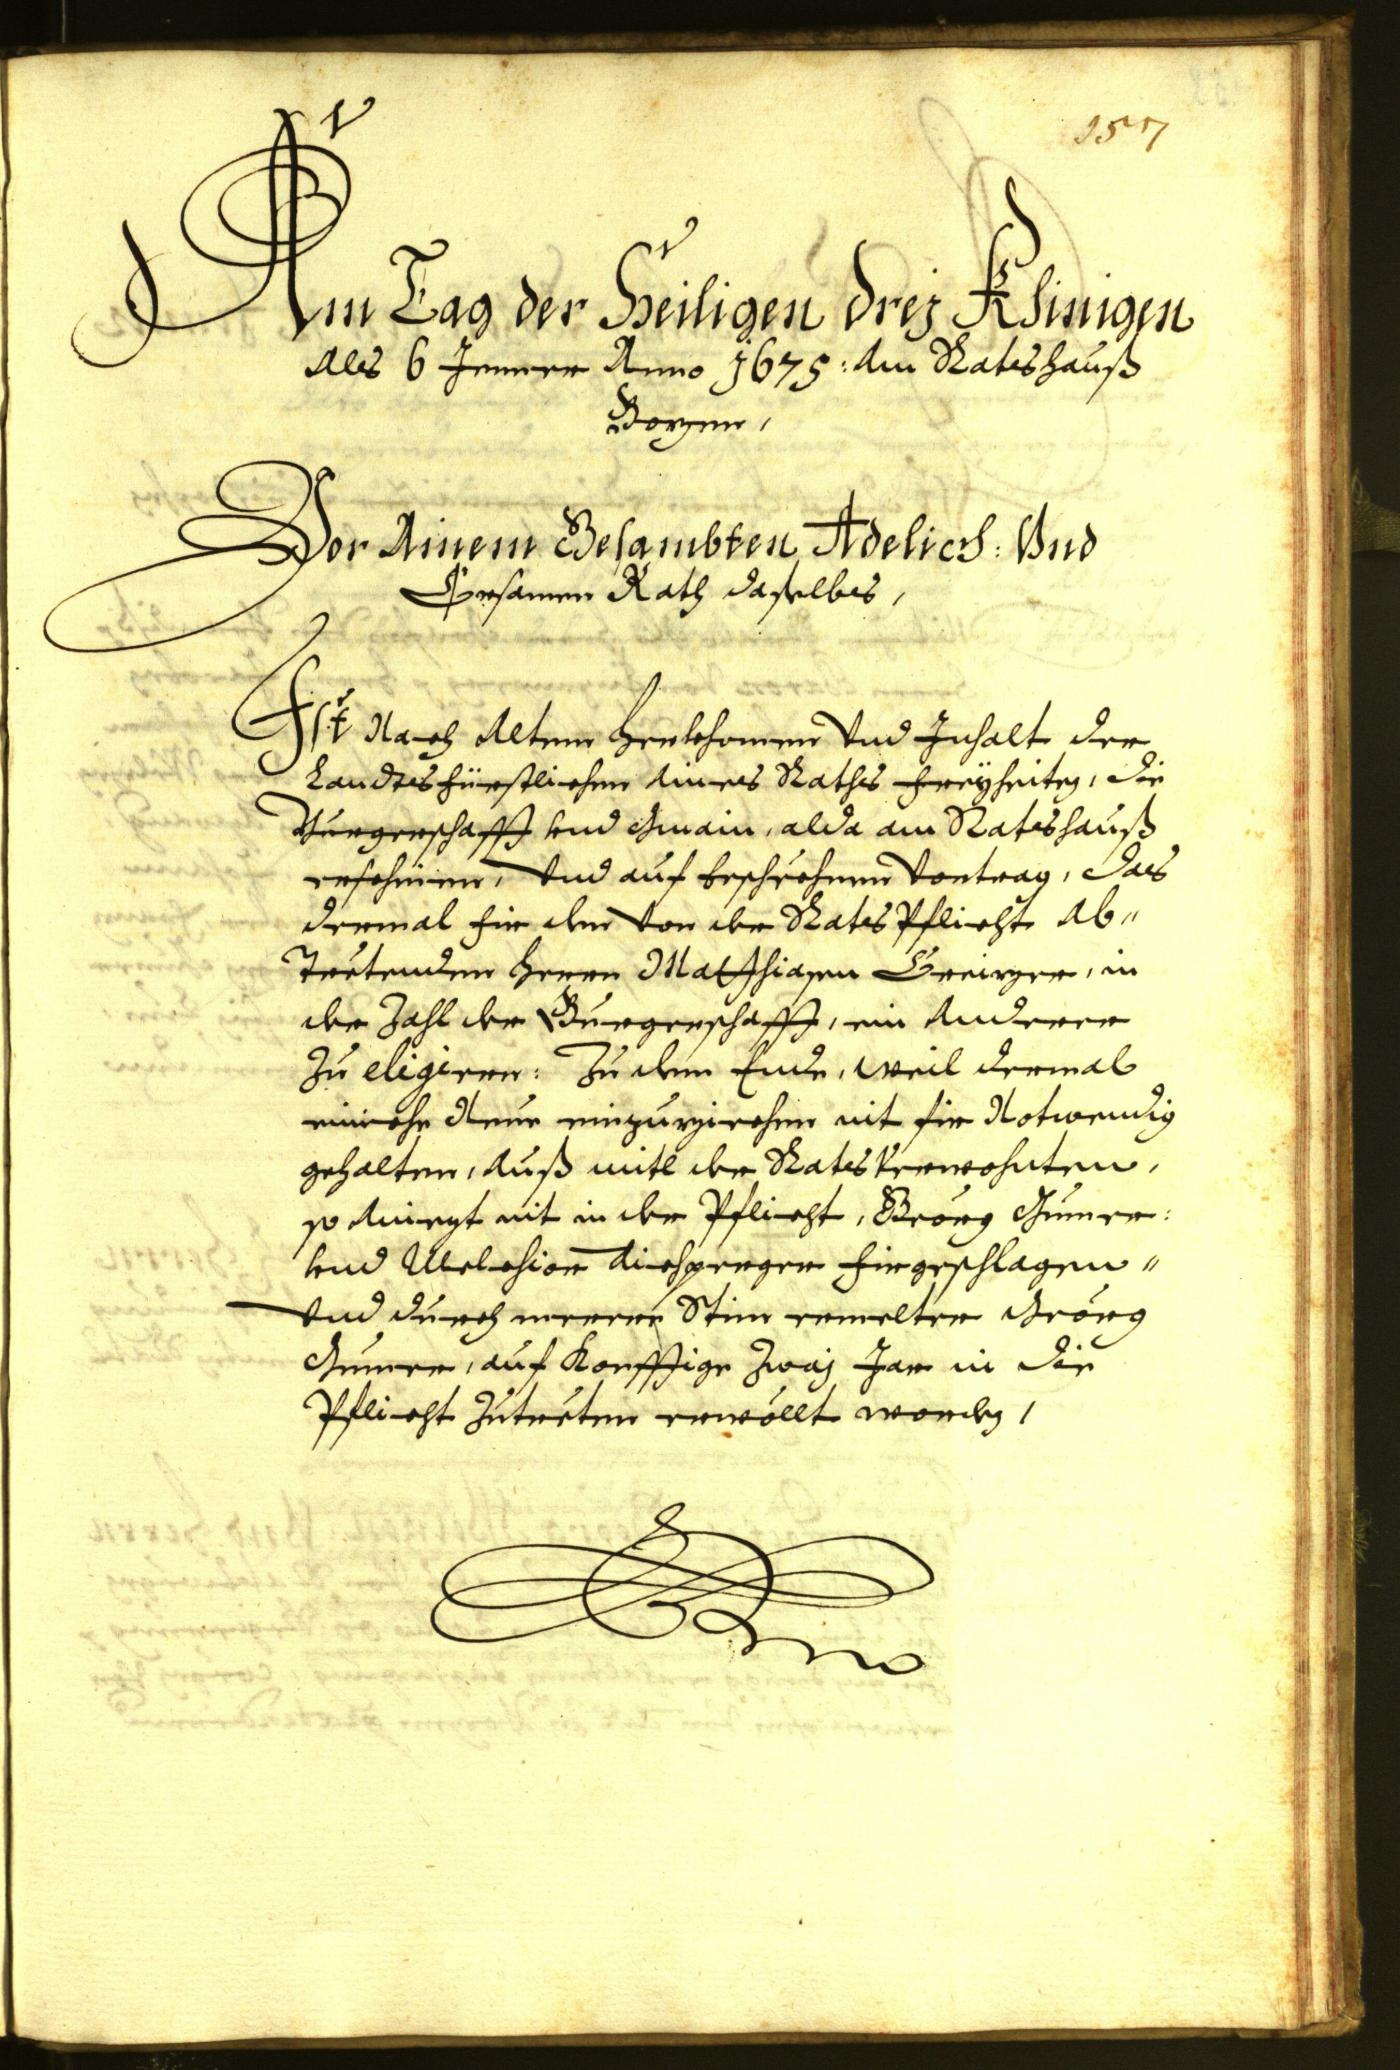 157
Am Tag der Heiligen drej Khinigen
Als 6 Jenner Anno 1675: Am Ratshauß
Bozen,
Vor Ainem Gesambten Adelich: Vnd
Ersamen Rath daselbs,
Ist Nach Altem Herkhomen Vnd Inhalt der
Landtsfürstlichen Aines Raths Freyheiten, die
Burgerschafft vnd Gmain, alda am Ratshauß
erschinen, Vnd auf beschechnen Vortrag, das
dermal fir den Von der Rats Pflicht Ab-
Tretenden Herrn Matthiasen, in
der Zahl der Burgerschafft, ein Anderer
Zu eligiern: Zu dem Ende, weil dermal
einiche Neue einzuziechen nit fir Notwendig
gehalten, Auß mitl der Rats Verwohnten,
so Aniezt nit in der Pflicht, Geörg Gumer:
vnd Melchior firgeschlagen
Vnd durch merere Stim ermelter Geörg
Gumer, auf Konfftige Zwaj Jar in die
Pflicht Zutreten erwöllt worden,